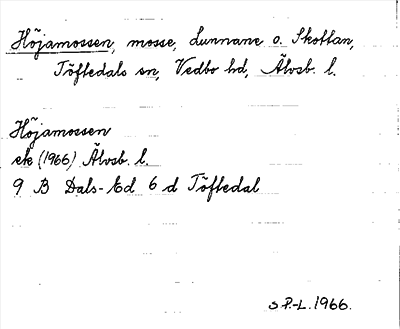 Höjamossen, mosse, Lunnane o. Skottan,
Töftedals sn, Vedbo hd, Älvsb. l.
Höjamossen
ek (1966) Älvsb. l.
9 B Dals-Ed 6 d Töftedal
S P.-L. 1966.